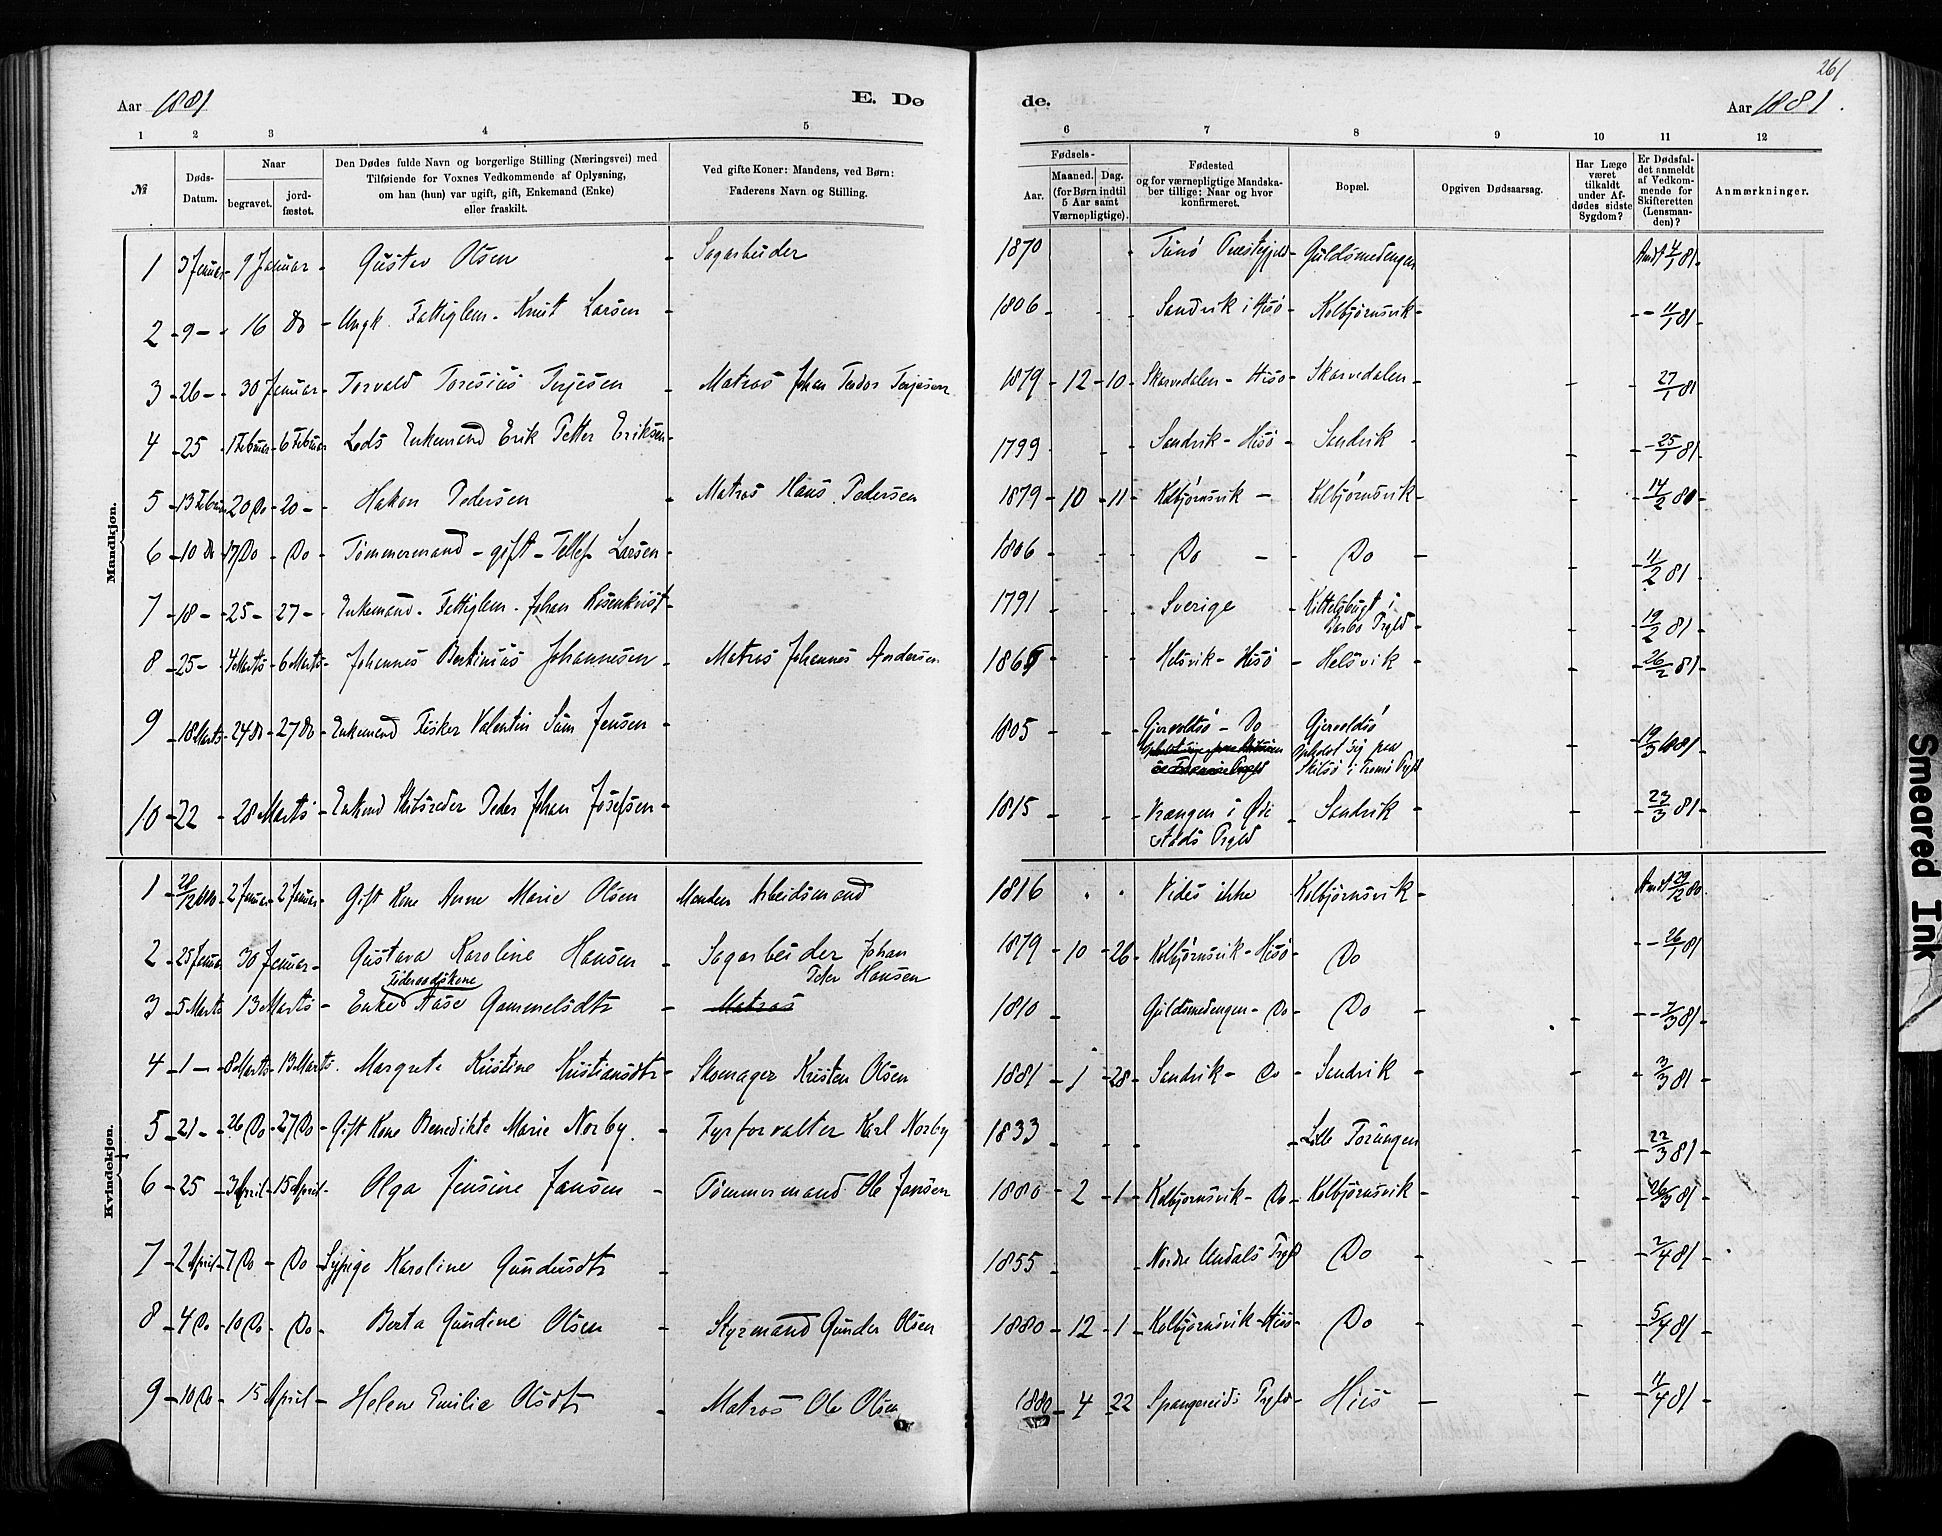 261
Aar 1881 E. Dø
de. Aar 1881.
1 2 3 4 5
6 7 8 9 10 11 12
№
Døds-Datum.
Naar
begravet.
jord-fæstet.
Den Dødes fulde Navn og borgerlige Stilling (Næringsvei) med
Tilføiende for Voxnes Vedkommende af Oplysning,
om han (hun) var ugift, gift, Enkemand (Enke)
eller fraskilt.
Ved gifte Koner: Mandens, ved Børn:
Faderens Navn og Stilling.
Fødsels-
Aar.
Maaned. Dag.
(for Børn indtil
5 Aar samt
Værnepligtige).
Fødested
og for værnepligtige Mandska-
ber tillige: Naar og hvor
konfirmeret.
Bopæl.
Opgiven Dødsaarsag.
Har Læge
været
tilkaldt
under Af-
dødes sidste
Sygdom?
Er Dødsfal-
det anmeldt
af Vedkom-
mende for
Skifteretten
(Lensman-
den)?
Anmærkninger.
Mandkjøn.
1 3 Januar - 9 Januar - Gustav Olsen - Sagarbeider 1870 - Præstegjeld - Guldsmedengen Anm 4/1 81
2 - 9 - 16 Do - Ungk. Fattiglem - Knut Larsen - 1806 - Sandvik i Hisø - Kolbjørnsvik - 11/1 81
3 - 26 - 30 Januar - Torvald Toresius Terjesen - Matros Johan Teodor Terjesen 1879 - 12 - 10 - Skarvedalen - Hisø - Skarvedalen - 27/1 81
4 - 25 - 1 Februar - 6 Februar - Lods Enkemand Erik Petter Eriksen - 1799 - Sandvik - Hisø - Sandvik - 25/1 81
5 - 13 Februar - 20 Do - 20 - Hakon Pedersen - Matros Hans Pedersen 1879 - 10 - 11 - Kolbjørnsvik - Kolbjørnsvik - 14/2 80
6 - 10 Do - 17 Do - Do - Tømmermand - gift - Tellef Larsen - 1806 - Do - Do - 11/2 81
7 - 18 - 25 - 27 - Enkemand - Fattiglem - Johan Rosenkvist - 1791 - Sverige - Kittelsbugt i
Barbo Prgld - 19/2 81
8 - 25 - 4 Marts - 6 Marts - Johannes Bertinius Johannesen - Matros Johannes Andersen 186 - Helsvik - Hisø - Helsvik - 26/2 81
9 - 18 Marts - 24 Do - 27 Do - Enkemand Fisker Valentin Sam Jensen - 1805 - Gjervoldsø - Do Gjervoldsø
Opholdt sig paa
Skilsø i Tromø Prgld - 19/3 1881
10 - 22 - 28 Marts - Enkemd Skibsreder Peder Johan Josefsen - 1815 - Vrængen i Øie
stads Prgld - Sandvik - 23/3 81
Kvindekjøn.
1 - 28/12 1880 - 2 Januar - 2 Januar - Gift Kone Anne Marie Olsen Manden Arbeidsmand 1816 Vides ikke Kolbjørnsvik - Anm 29/12 80
2 - 25 Januar - 30 Januar - Gustava Karoline Hansen - Sagarbeider Johan
Peter Hansen 1879 - 10 - 26 - Kolbjørnsvik - Hisø - Do - 26/1 81
Føderaadskone
3 - 5 Marts 13 Marts - Enke Aase Gammelsdtr - Matros 1810 - Guldsmedengen - Do - Do - 7/3 81
4 - 1 - 8 Marts - 13 Marts. Margrete Kristine Kristiansdtr - Skomager Kristen Olsen 1881 - 1 - 28 - Sandvik - Do - Sandvik - 3/3 81
5 - 21 - 26 Do - 27 Do - Gift Kone Benedikte Marie Norby. - Fyrforvalter Karl Norby 1833 - Lille Torungen - 22/3 81
6 - 25 - 3 April - 15 April - Olga Jensine Jansen - Tømmermand Ole Jansen 1880 - 2 - 1 - Kolbjørnsvik - Do - Kolbjørnsvik - 26/3 81
7 - 2 April - 7 Do - Do - Sypige Karoline Gundersdtr - 1855 - Nordre Undals Prgld Do - 2/4 81
8 - 4 Do - 10 Do - Do - Berta Gundine Olsen - Styrmand Gunder Olsen 1880 - 12 - 1 - Kolbjørnsvik - Hisø - Do - 5/4 81
9 - 10 Do - 15 April - Helene Emilie Olsdtr - Matros Ole Olsen 1880 - 4 - 22 - Spangereids Prgld - Hisø - 11/4 81
Smeared Ink